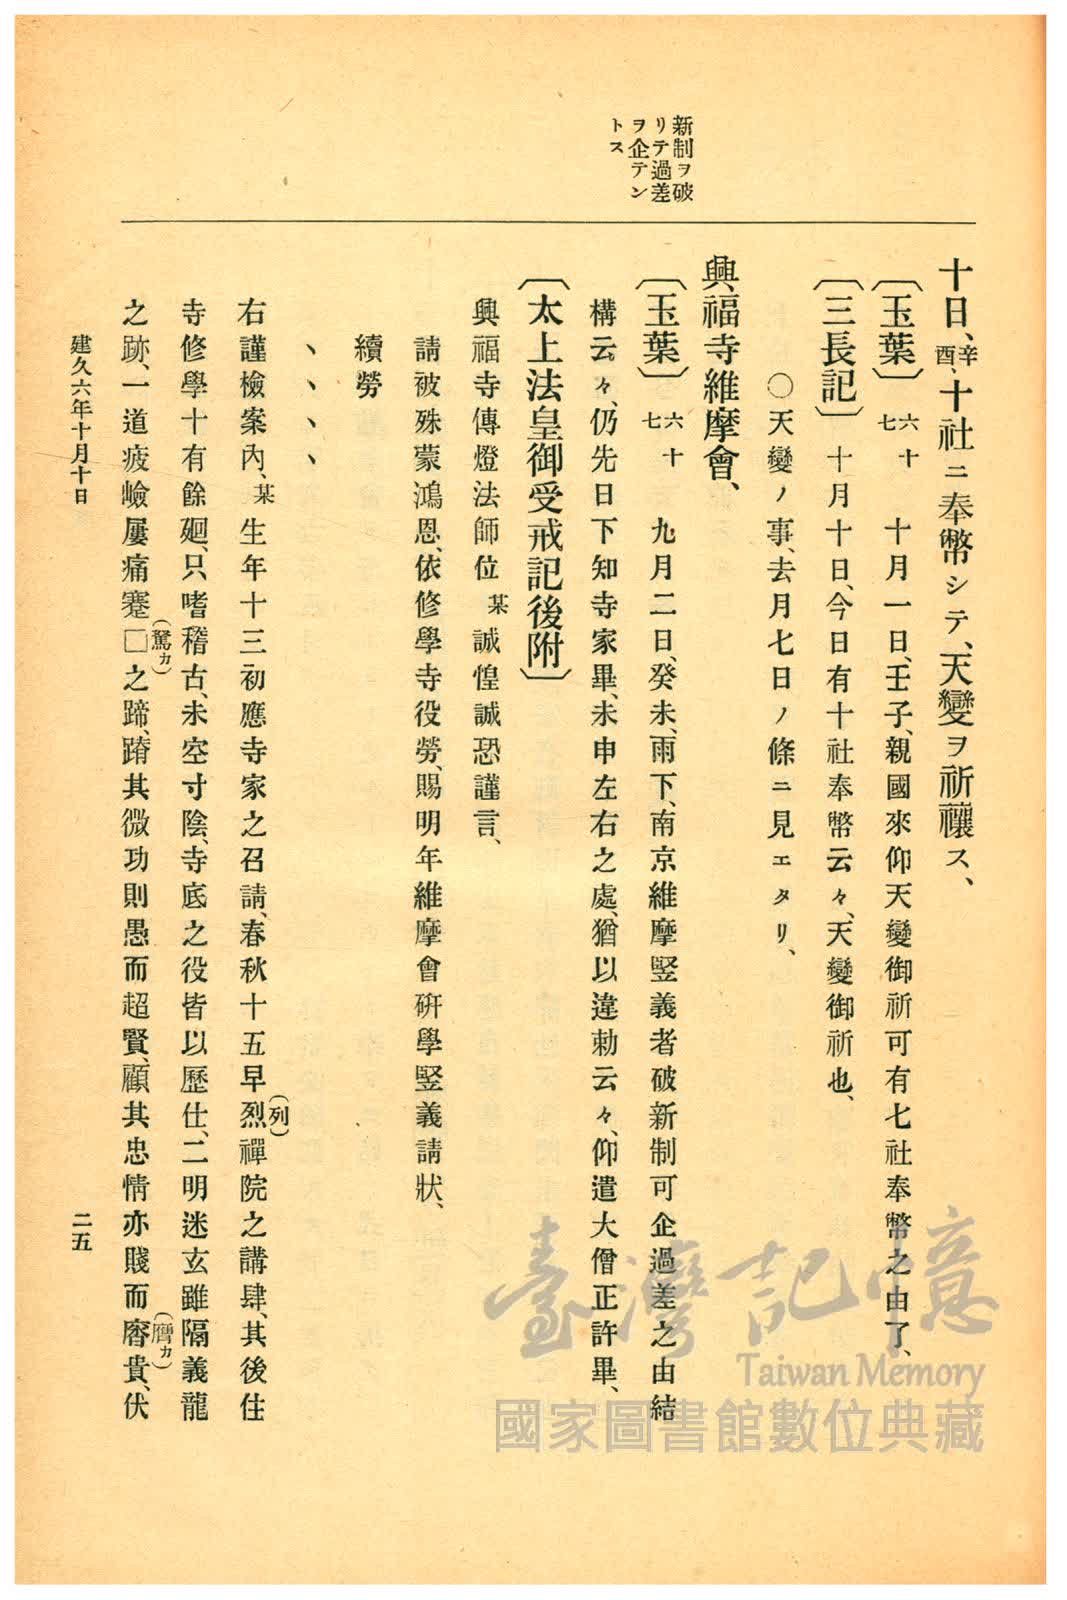 新制ヲ破
リテ過差
ヲ企テン
トス
十日、辛酉、十社ニ奉幣シテ、天變ヲ祈禳ス、
〔玉葉〕 六十七 十月一日、壬子、親國來仰天變御祈可有七社奉幣之由了、
〔三長記〕 十月十日、今日有十社奉幣云々、天變御祈也、
○天變ノ事、去月七日ノ條ニ見エタリ、
興福寺維摩會、
〔玉葉〕 六十七 九月二日、癸未、雨下、南京維摩竪義者破新制可企過差之由結
構云々、仍先日下知寺家畢、未申左右之處、猶以違勅云々、仰遣大僧正許畢、
〔太上法皇御受戒記後附〕
興福寺傳燈法師位某誠惶誠恐謹言、
請被殊蒙鴻恩、依修學寺役勞、賜明年維摩會硏學竪義請狀、
續勞
、、、、
右謹檢案內、某生年十三初應寺家之召請、春秋十五早烈(列)禪院之講肆、其後住
寺修學十有餘廻、只嗜稽古、未空寸陰、寺底之役皆以歷仕、二明迷玄雖隔義龍
之跡、一道疲嶮屢痛蹇□(駑カ)之蹄、蹐其微功則愚而超賢、顧其忠情亦賤而㾺(膺カ)貴、伏
建久六年十月十日
二五
臺灣記憶
Taiwan Memory
國家圖書館數位典藏